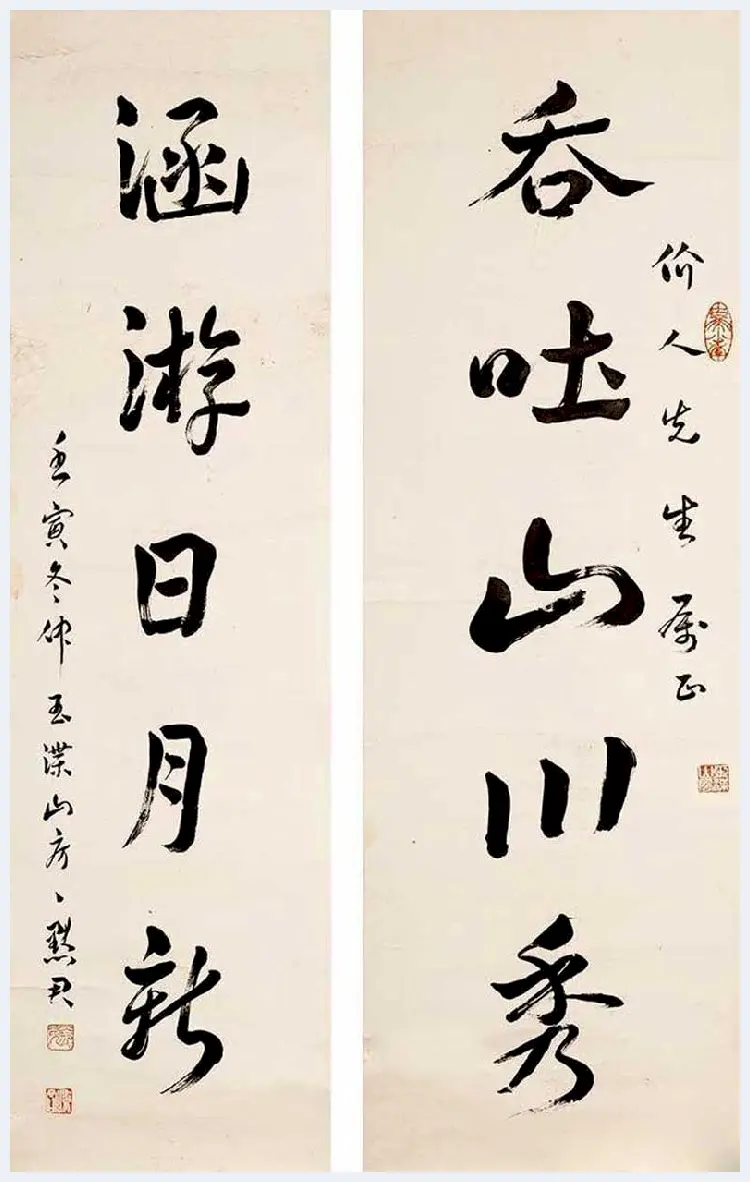 吞吐山川秀
价人先生属正
涵游日月新
壬寅冬仲玉渫山房、默君